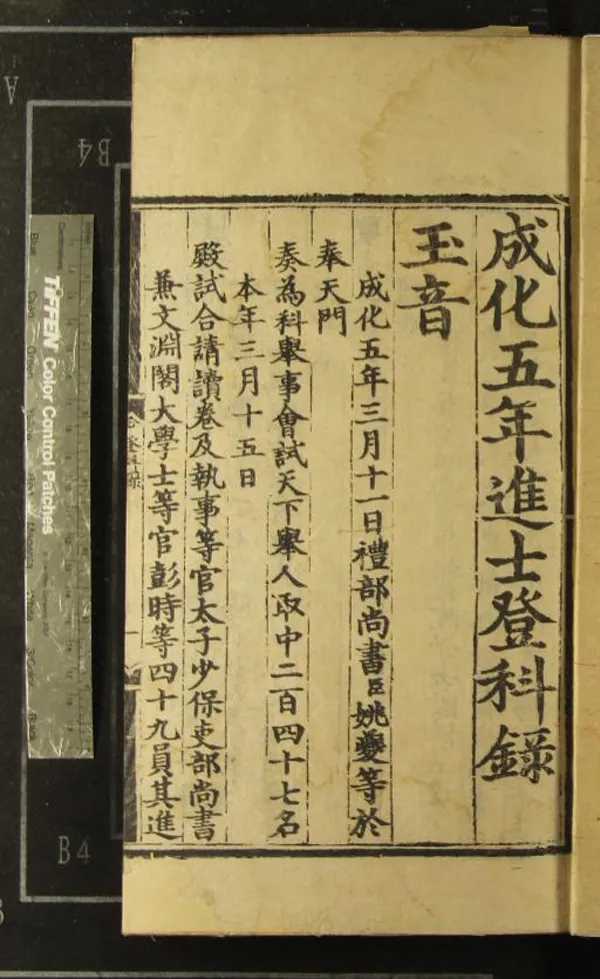 成化五年進士登科錄
玉音
成化五年三月十一日禮部尚書臣姚夔等於
奉天門
奏為科舉事會試天下舉人取中二百四十七名
本年三月十五日
殿試合請讀卷及執事等官太子少保吏部尚書
兼文淵閣大學士等官彭時等四十九員其進
TIFFEN Color Control Patches
B4
B4
A